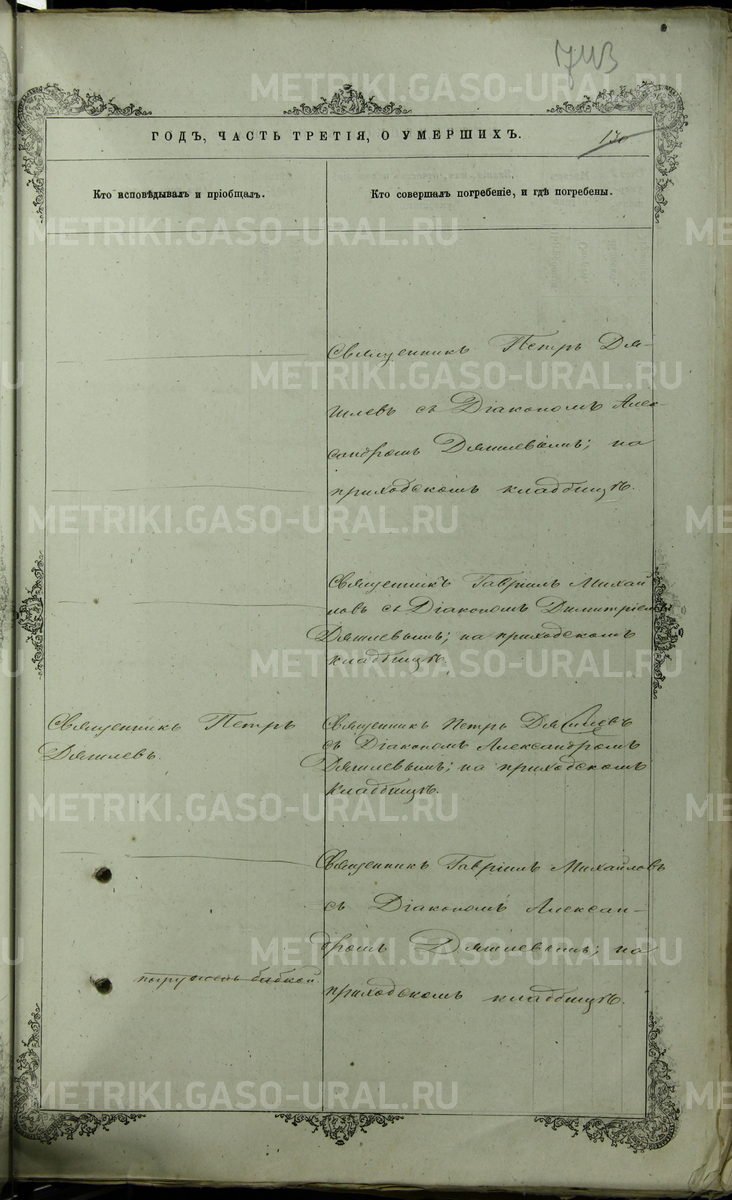 1713
ГОДЪ, ЧАСТЬ ТРЕТІЯ, О УМЕРШИХЪ.
130
Кто исповѣдывалъ и пріобщалъ.
Кто совершалъ погребеніе, и гдѣ погребены.
Священникъ Петръ Дя-
гилевъ съ Діакономъ Алек-
сандромъ Дягилевымъ; на
приходскомъ кладбищѣ.
Священникъ Гавріилъ Михай
ловъ съ Діакономъ Димитріемъ
Дягилевымъ; на приходскомъ
кладбищѣ.
Священникъ Петръ
Дягилевъ.
Священникъ Петръ Дягилевъ
съ Діакономъ Александромъ
Дягилевымъ; на приходскомъ
кладбищѣ.
Священникъ Гавріилъ Михайловъ
съ Діакономъ Алексан-
дромъ Дягилевымъ; на
приходскомъ кладбищѣ.
погруженъ бабкой
METRIKI.GASO-URAL.RU